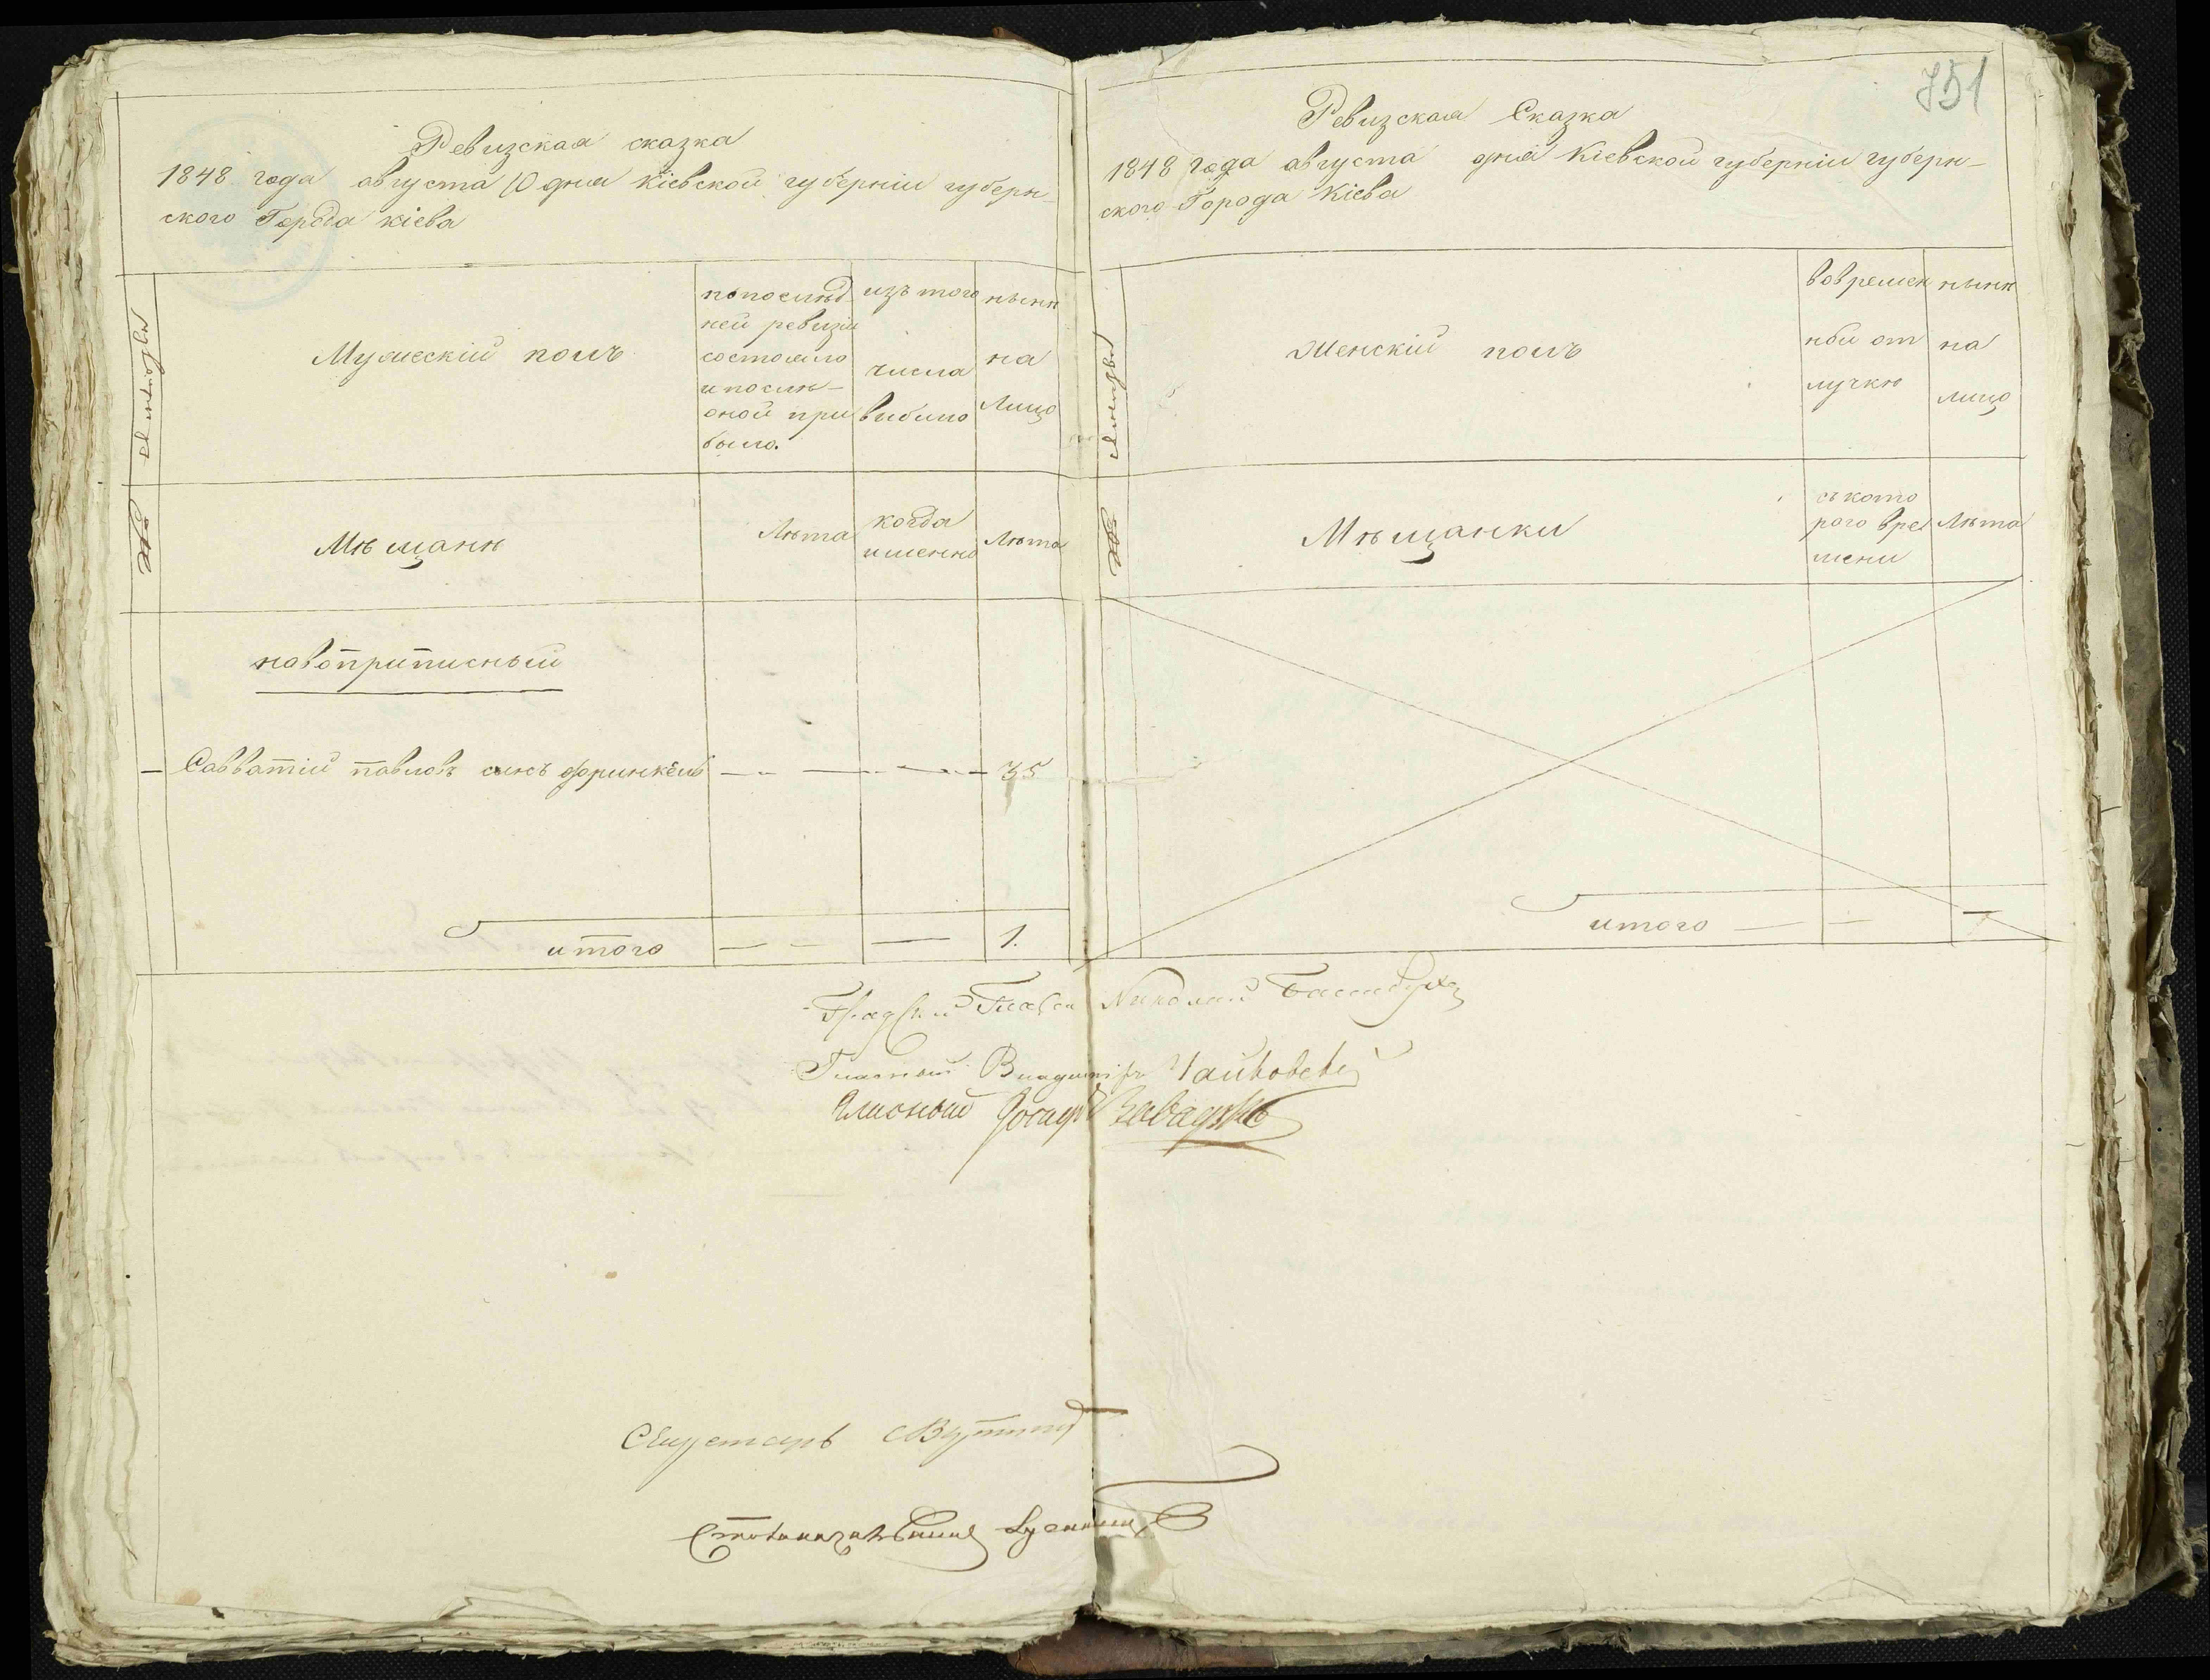 Ревизская сказка
1848 года августа 10 дня Кіевской губерніи губерн-
ского Города Кіева
Мужескій полъ
попослѣд-
ней ревизіи
состояло
и послѣ-
оной при
было.
изъ того
числа
выбыло
нынѣ
на
лицо
Мѣщанѣ
Лѣта
когда
именно
Лѣта
новоприписный
Савватій Павловъ сынъ 35
итого 1.
751
Ревизская Сказка
1848 года августа дня Кіевской губерніи губерн-
ского Города Кіева
Женскій полъ
вовремен
ной от
лучкѣ
нынѣ
на
лицо
Мѣщанки
съ кото
рого вре
мени
Лѣта
итого
Градскій Глава Николай
Гласный Владиміръ Чайковскій
Гласный Іосифъ Завадскій
Секретарь
Столоначальникъ